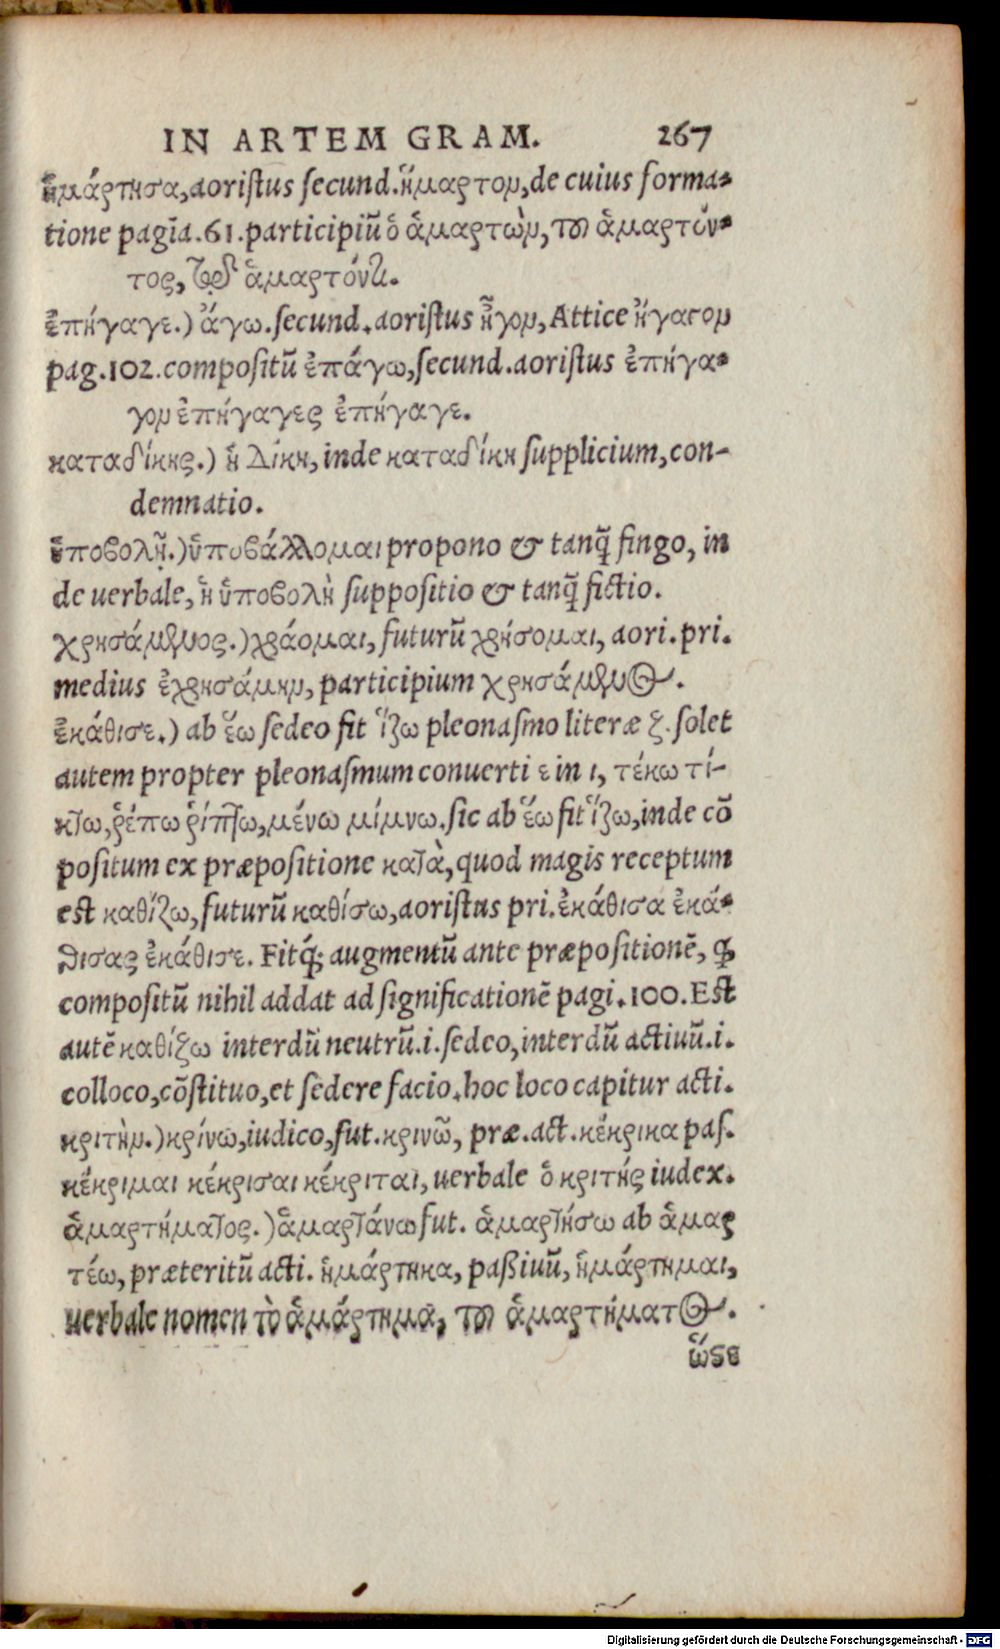 IN ARTEM GRAM. 267
ἡμάρτησα, aoristus secund. ἥμαρτον, de cuius forma-
tione pagīa. 61. participiū ὁ ἁμαρτὼν, τοῦ ἁμαρτόν-
τος, τῷ ἁμαρτόντι.
ἐπήγαγε.) ἄγω. secund. aoristus ἦγον, Attice ἤγαγον
pag. 102. compositū ἐπάγω, secund. aoristus ἐπήγα-
γον ἐπήγαγες ἐπήγαγε.
καταδίκης.) ἡ Δίκη, inde καταδίκη supplicium, con-
demnatio.
ὑποβολῇ.) ὑποβάλλομαι propono & tanq̃ fingo, in
de uerbale, ἡ ὑποβολὴ suppositio & tanq̃ fictio.
χρησάμενος.) χράομαι, futurū χρήσομαι, aori. pri.
medius ἐχρησάμην, participium χρησάμενος.
ἐκάθισε.) ab ἕω sedeo fit ἵζω pleonasmo literæ ζ. solet
autem propter pleonasmum conuerti ε in ι, τέκω τί-
κτω, ῥέπω ῥίπτω, μένω μίμνω. sic ab ἕω fit ἵζω, inde cō
positum ex præpositione κατὰ, quod magis receptum
est καθίζω, futurū καθίσω, aoristus pri. ἐκάθισα ἐκά-
θισας ἐκάθισε. Fitq́; augmentū ante præpositionē, ꝙ
compositū nihil addat ad significationē pagi. 100. Est
autē καθίζω interdū neutrū. i. sedeo, interdū actiuū. i.
colloco, cōstituo, et sedere facio. hoc loco capitur acti.
κριτὴν.) κρίνω, iudico, fut. κρινῶ, præ. act. κέκρικα pas.
κέκριμαι κέκρισαι κέκριται, uerbale ὁ κριτής iudex.
ἁμαρτήματος.) ἁμαρτάνω fut. ἁμαρτήσω ab ἁμαρ
τέω, præteritū acti. ἡμάρτηκα, paßiuū, ἡμάρτημαι,
uerbale nomen τὸ ἁμάρτημα, τοῦ ἁμαρτήματος.
ὥστε
Digitalisierung gefördert durch die Deutsche Forschungsgemeinschaft - DFG